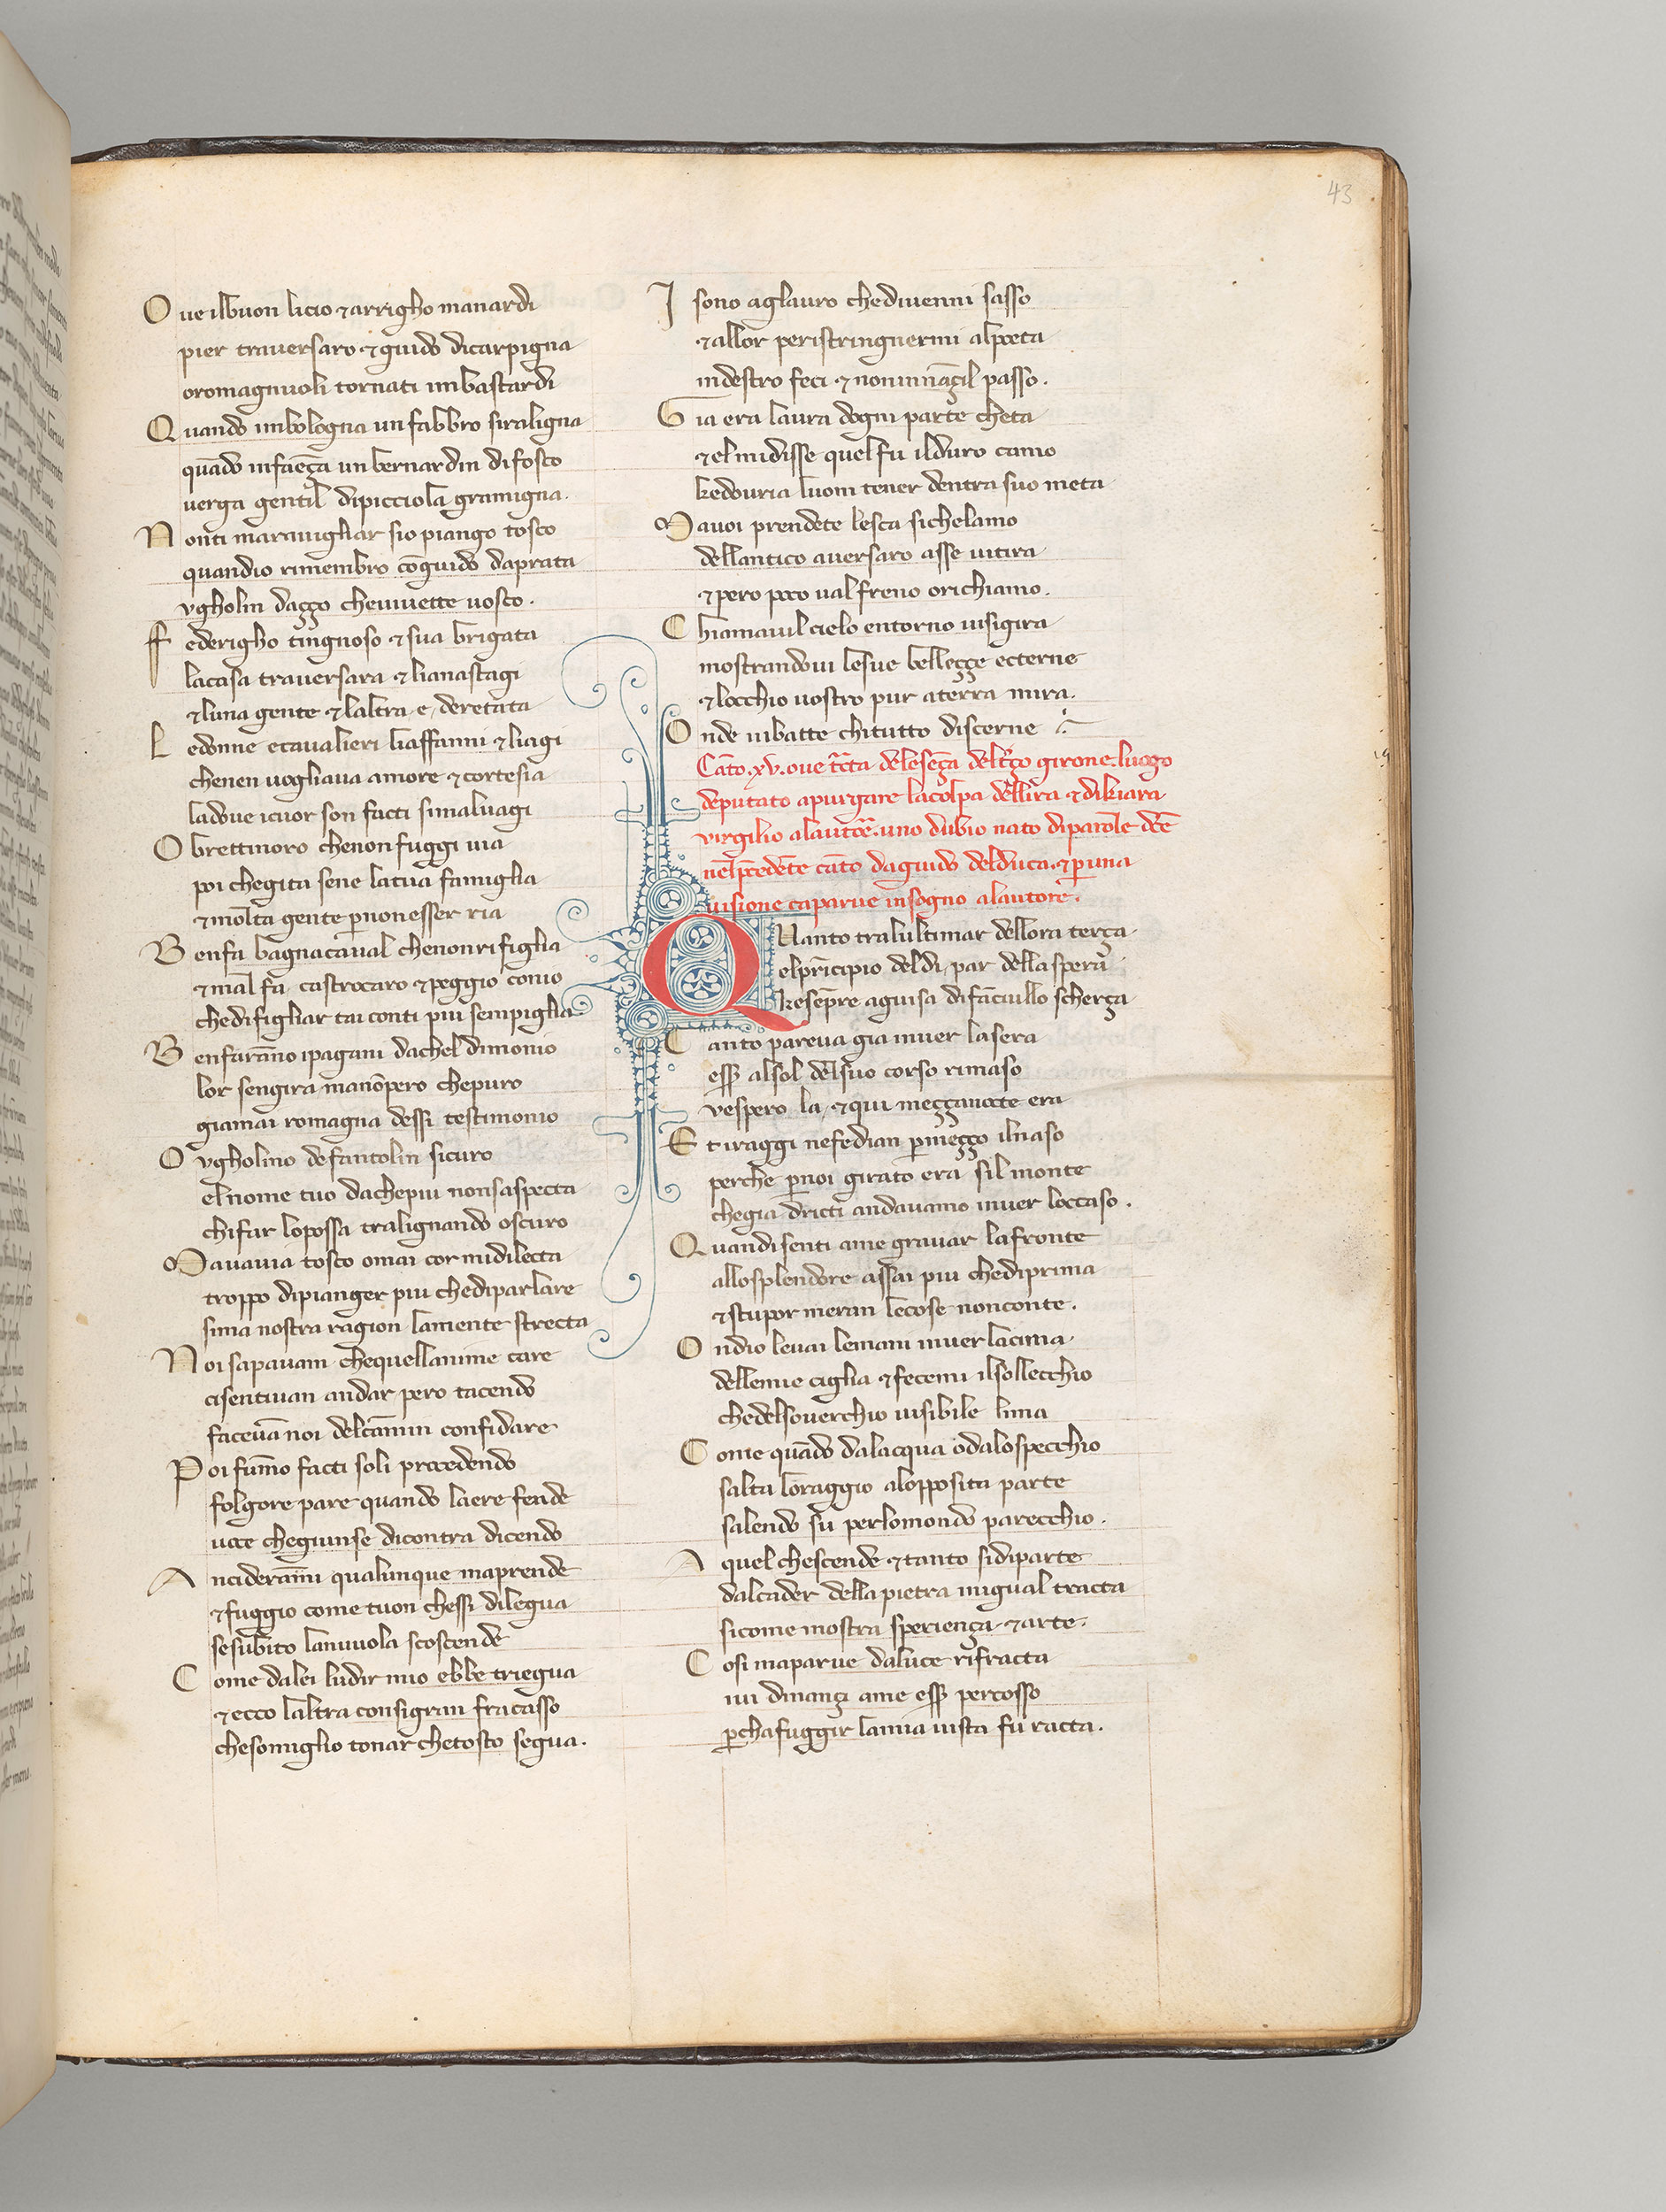 43
Oue ilbuon licio ⁊ arrigho manardi
pier trauersaro ⁊ guido dicarpigna
oromagnuoli tornati imbastardi
Quando imbologna un fabbro siraligna
quādo infaēça un bernardin difosco
uerga gentil dipicciola gramigna.
Nonti marauigliar sio piango tosco
quandio rimembro cōguido daprata
vgholin daççO cheuiuette uosco.
ffederigho tingnoso ⁊ sua brigata
lacasa trauersara ⁊ lianastagi
⁊ luna gente ⁊ laltra e deretata
Ledonne ecaualieri liaffanni ⁊ liagi
chenen uogliaua amore ⁊ cortesia
ladoue icuor son facti simaluagi
O brettinoro chenon fuggi uia
poi chegita sene latua famiglia
⁊ molta gente p̄ nonesser ria
Benfa bagnacaual chenonrifiglia
⁊ mal fa castrocaro ⁊ peggio conio
chedifigliar tai conti piu sempiglia
Benfaranno ipagani dachel dimonio
lor sengira manōpero chepuro
giamai romagna dessi testimonio
O vgholino defantolin sicuro
el nome tuo dachepiu nonsaspecta
chifar lopossa tralignando oscuro
Mauauia tosco omai cor midilecta
troppo dipianger piu chediparlare
sima nostra ragion lamente strecta
Noi sapauam chequellanime care
cisentiuan andar pero tacendo
faceuā noi delcāmin confidare
Poi fumo facti soli procedendo
folgore pare quando laere fende
uoce chegiunse dicontra dicendo
Anciderammi qualunque maprende
⁊ fuggio come tuon chessi dilegua
sesubito lanuuola scoscende
Come dalei ludir mio ebbe triegua
⁊ ecco laltra consigran fracasso
chesomiglio tonar chetosto segua.
I sono aglauro chediuenni sasso
⁊ allor peristringuermi alpoeta
indestro feci ⁊ noninnāçil passo.
Gia era laura dogni parte cheta
⁊ el midisse quel fu ilduro camo
kedouria luom tener dentra suo meta
Mauoi prendete lesca sichelamo
dellantico auersaro asse uitira
⁊ pero poco ual freno orichiamo.
Chiamauil cielo entorno uisigira
mostrandoui lesue belleççe ecterne
⁊ locchio uostro pur aterra mira.
Onde uibatte chitutto discerne
Cāto .xv. oue trāta delesēça deltrço girone. luogo
deputato apurgare lacolpa dellira ⁊ dikiara
virgilio alautore. uno dubio nato diparole dcē
nelprcedēte cāto daguido delduca. ⁊ p una
uisione caparue insogno alautore.
Quanto tralultimar dellora terça
elprincipio deldi par dellaspera
kesempre aguisa difanciullo scherça
Tanto pareua gia inuer lasera
ess̄ alsol delsuo corso rimaso
vespero la, ⁊ qui meççanocte era
Et iraggi nefedian p̄ meçço ilnaso
perche p̄ noi girato era sil monte
chegia dricti andauamo inuer loccaso.
Quandisenti ame grauar lafronte
allosplendore assai piu chediprima
⁊ stupor meran lecose nonconte.
Ondio leuai lemani inuer lacima
dellemie ciglia ⁊ fecemi ilsolecchio
chedelsouerchio uisibile lima
Come quādo dalacqua odalospecchio
salta loraggio alopposita parte
salendo su perlomondo parecchio.
A quel chescende ⁊ tanto sidiparte
dalcader della pietra inigual tracta
sicome mostra sperienca ⁊ arte.
Cosi maparue daluce rifracta
iui dinançi ame ess̄ percosso
p̄cha fuggir lamia uista fu racta.